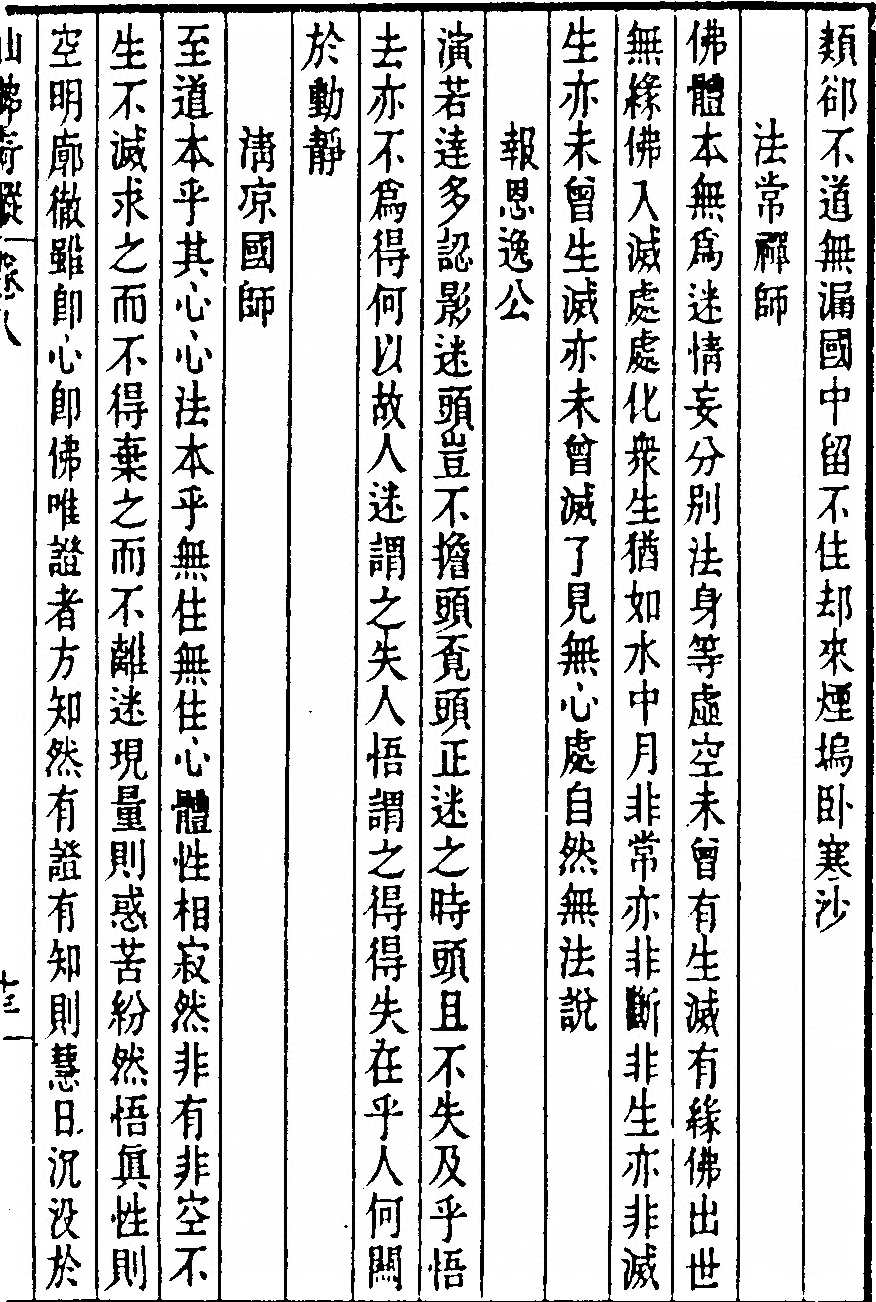 類郤不道無漏國中留不住却來煙塢卧寒沙
法常禪師
佛體本無爲迷情妄分別法身等虛空未曾有生滅有緣佛出世
無緣佛入滅處處化衆生猶如水中月非常亦非斷非生亦非滅
生亦未曾生滅亦未曾滅了見無心處自然無法說
報恩逸公
演若達多認影迷頭豈不擔頭覔頭正迷之時頭且不失及乎悟
去亦不爲得何以故人迷謂之失人悟謂之得得失在乎人何關
於動靜
淸凉國師
至道本乎其心心法本乎無住無住心體性相寂然非有非空不
生不滅求之而不得棄之而不離迷現量則惑苦紛然悟眞性則
空明廓徹雖卽心卽佛唯證者方知然有證有知則慧日沉没於
十三